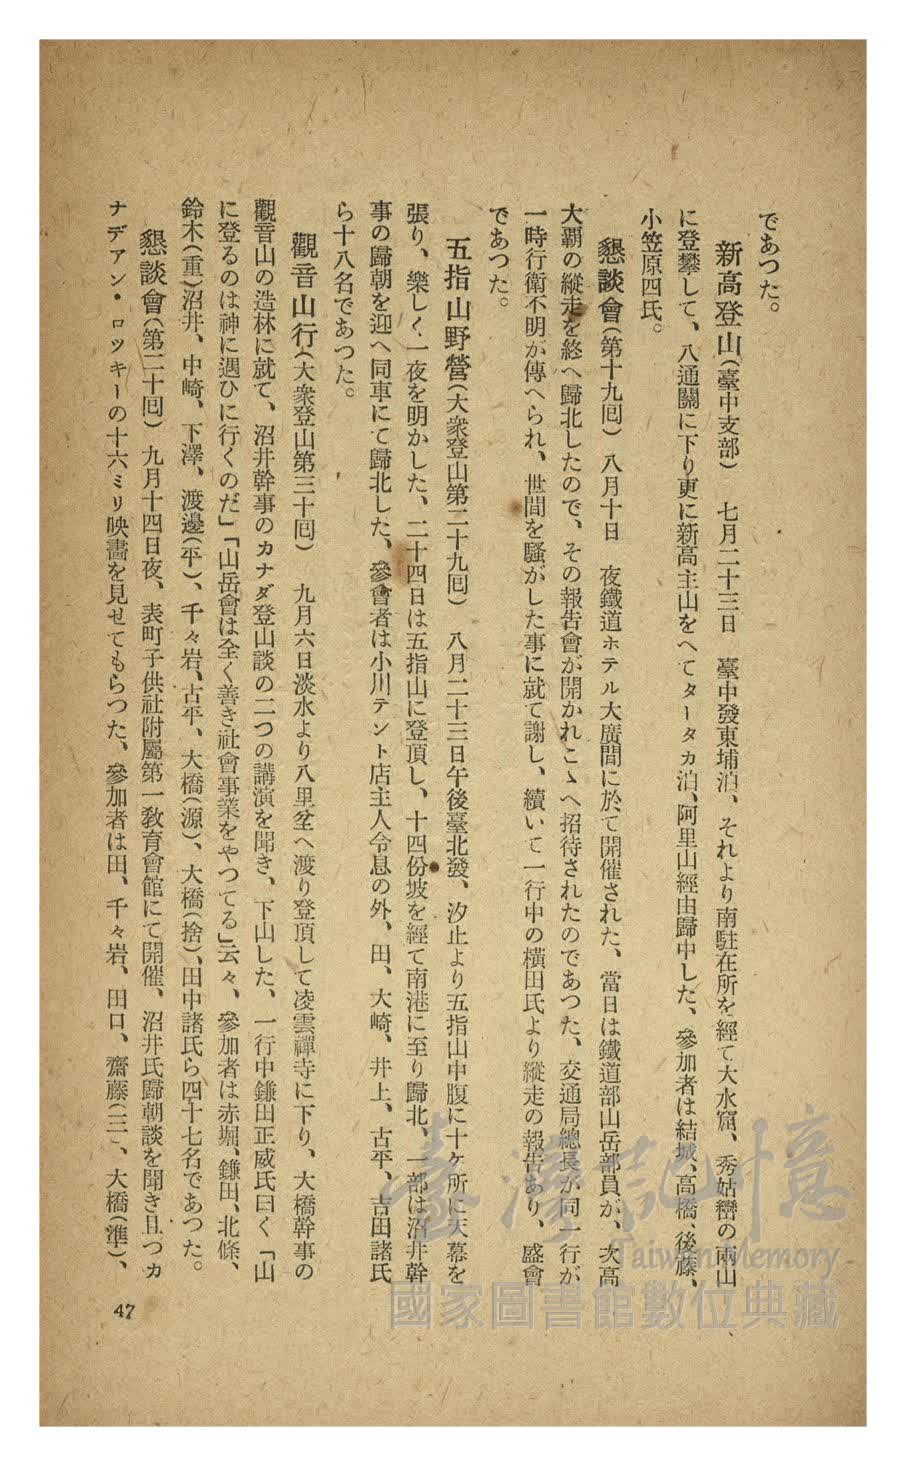 であつた。
新高登山(臺中支部) 七月二十三日 臺中發東埔泊、それより南駐在所を經て大水窟、秀姑巒の兩山
に登攀して、八通關に下り更に新高主山をへてタータカ泊、阿里山經由歸中した、參加者は結城、高橋、後藤、
小笠原四氏。
懇談會(第十九囘) 八月十日 夜鐵道ホテル大廣間に於て開催された、當日は鐵道部山岳部員が、次高
大覇の縱走を終へ歸北したので、その報告會が開かれこゝへ招待されたのであつた、交通局總長が同一行が
一時行衛不明が傳へられ、世間を騷がした事に就て謝し、續いて一行中の橫田氏より縱走の報告あり、盛會
であつた。
五指山野營(大衆登山第二十九囘) 八月二十三日午後臺北發、汐止より五指山中腹に十ケ所に天幕を
張り、樂しく一夜を明かした、二十四日は五指山に登頂し、十四份坡を經て南港に至り歸北、一部は沼井幹
事の歸朝を迎へ同車にて歸北した、參會者は小川テント店主人令息の外、田、大崎、井上、古平、吉田諸氏
ら十八名であつた。
觀音山行(大衆登山第三十囘) 九月六日淡水より八里坌へ渡り登頂して凌雲禪寺に下り、大橋幹事の
觀音山の造林に就て、沼井幹事のカナダ登山談の二つの講演を聞き、下山した、一行中鎌田正威氏曰く「山
に登るのは神に遇ひに行くのだ」「山岳會は全く善き社會事業をやつてる」云々、參加者は赤堀、鎌田、北條、
鈴木(重)沼井、中崎、下澤、渡邊(平)、千々岩、古平、大橋(源)、大橋(捨)、田中諸氏ら四十七名であつた。
懇談會(第二十囘) 九月十四日夜、表町子供社附屬第一教育會館にて開催、沼井氏歸朝談を聞き且つカ
ナデアン・ロツキーの十六ミリ映畫を見せてもらつた、參加者は田、千々岩、田口、齋藤(三)、大橋(準)、
47
臺灣記憶
Taiwan Memory
國家圖書館數位典藏